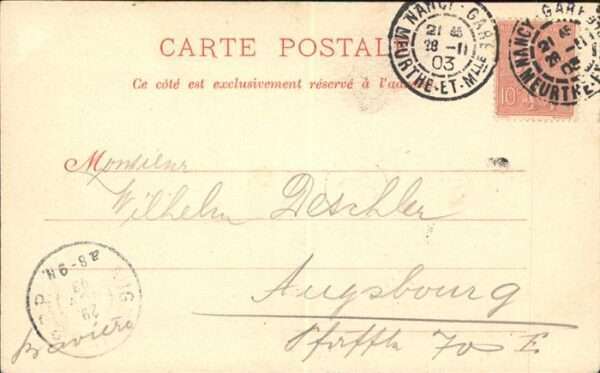 CARTE POSTALE
Ce côté est exclusivement réservé à l'adr
NANCY-GARE
21
28-11
03
MEURTHE-ET-Mlle
NANCY-GARE
MEURTHE-E
10
Monsieur
Wilhelm Deschler
Augsbourg
70 E
Bavière
8-9 N.
29